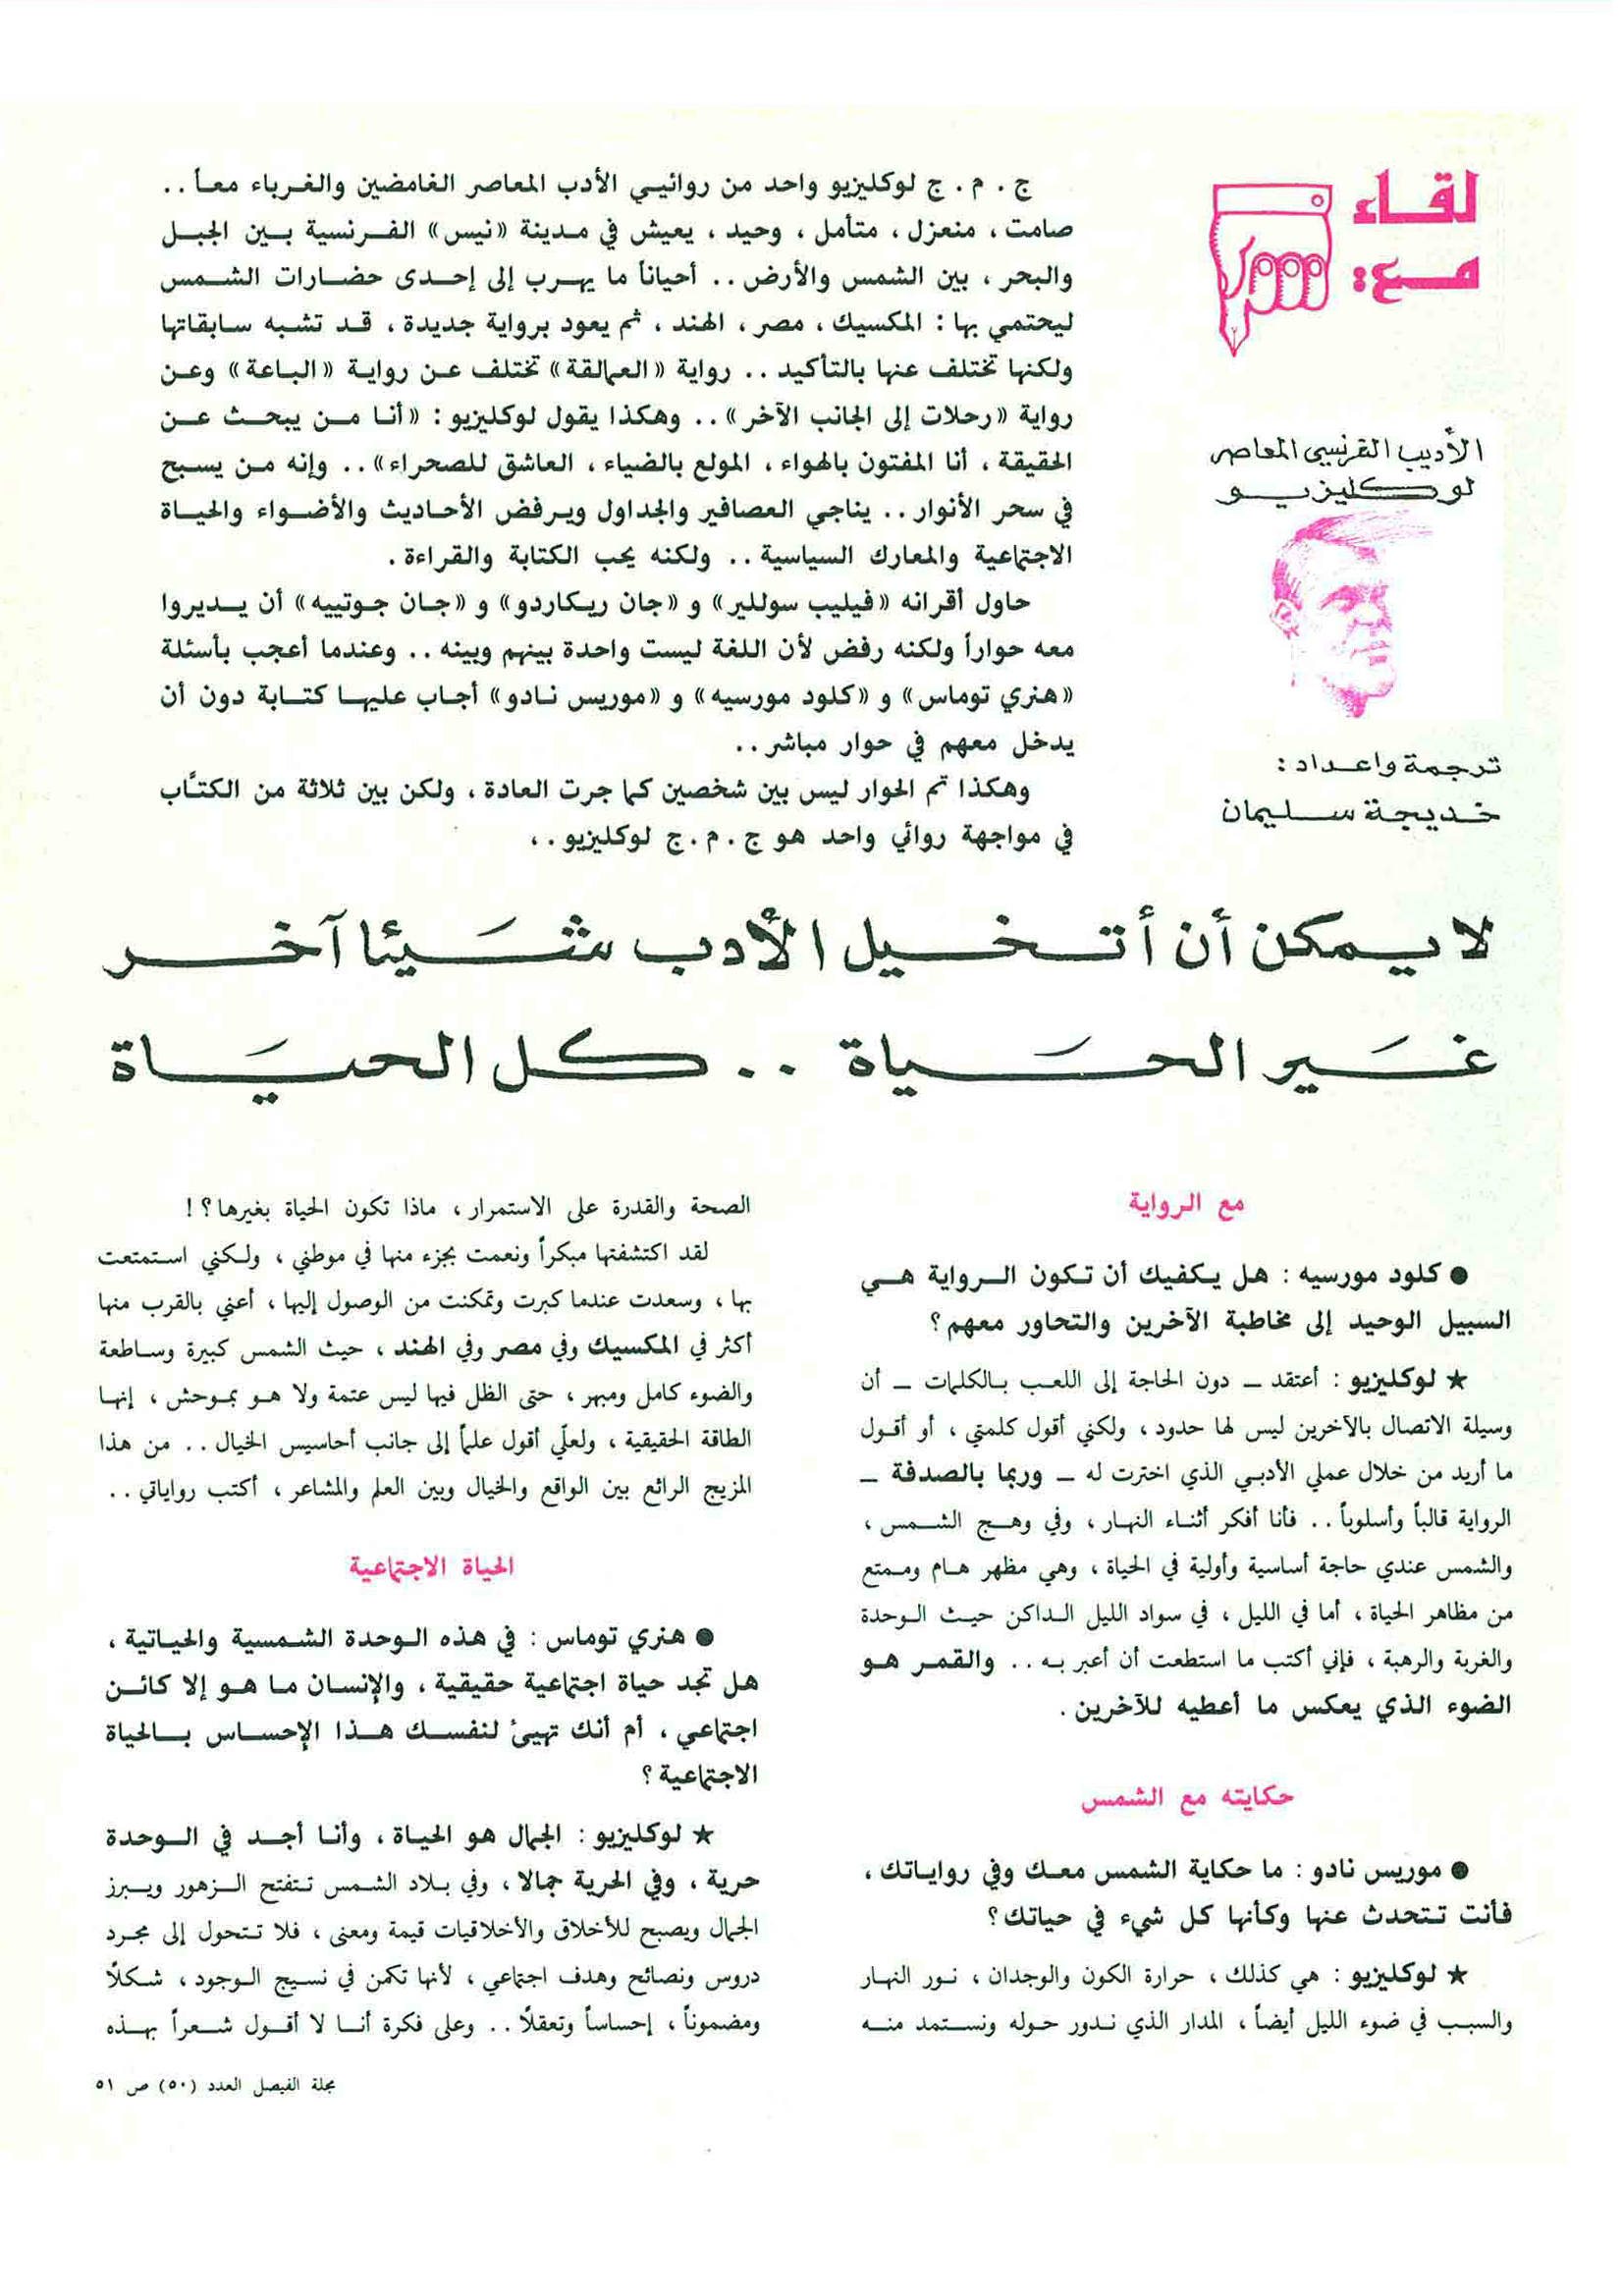 لقاء
مع:
الأديب الفرنسي المعاصر
لوكليزيو
ترجمة واعداد:
خديجة سليمان
ج . م . ج لوكليزيو واحد من روائيي الأدب المعاصر الغامضين والغرباء معاً ..
صامت ، منعزل ، متأمل ، وحيد ، يعيش في مدينة «نيس» الفرنسية بين الجبل
والبحر ، بين الشمس والأرض .. أحياناً ما يهرب إلى إحدى حضارات الشمس
ليحتمي بها : المكسيك ، مصر ، الهند ، ثم يعود برواية جديدة ، قد تشبه سابقاتها
ولكنها تختلف عنها بالتأكيد .. رواية «العمالقة» تختلف عن رواية «الباعة» وعن
رواية «رحلات إلى الجانب الآخر» .. وهكذا يقول لوكليزيو : «أنا من يبحث عن
الحقيقة ، أنا المفتون بالهواء ، المولع بالضياء ، العاشق للصحراء» .. وإنه من يسبح
في سحر الأنوار .. يناجي العصافير والجداول ويرفض الأحاديث والأضواء والحياة
الاجتماعية والمعارك السياسية .. ولكنه يحب الكتابة والقراءة .
حاول أقرانه «فيليب سوللير» و «جان ريكاردو» و «جان جوتييه» أن يديروا
معه حواراً ولكنه رفض لأن اللغة ليست واحدة بينهم وبينه .. وعندما أعجب بأسئلة
«هنري توماس» و «كلود مورسيه» و «موريس نادو» أجاب عليها كتابة دون أن
يدخل معهم في حوار مباشر ..
وهكذا تم الحوار ليس بين شخصين كما جرت العادة ، ولكن بين ثلاثة من الكتَّاب
في مواجهة روائي واحد هو ج . م . ج لوكليزيو . ،
لا يمكن أن أتخيل الأدب شيئا آخر
غير الحياة .. كل الحياة
مع الرواية
● كلود مورسيه : هل يكفيك أن تكون الرواية هي
السبيل الوحيد إلى مخاطبة الآخرين والتحاور معهم ؟
★ لوكليزيو : أعتقد – دون الحاجة إلى اللعب بالكلمات – أن
وسيلة الاتصال بالآخرين ليس لها حدود ، ولكني أقول كلمتي ، أو أقول
ما أريد من خلال عملي الأدبي الذي اخترت له – وربما بالصدفة –
الرواية قالباً وأسلوباً .. فأنا أفكر أثناء النهار ، وفي وهج الشمس ،
والشمس عندي حاجة أساسية وأولية في الحياة ، وهي مظهر هام وممتع
من مظاهر الحياة ، أما في الليل ، في سواد الليل الداكن حيث الوحدة
والغربة والرهبة ، فإني أكتب ما استطعت أن أعبر به .. والقمر هو
الضوء الذي يعكس ما أعطيه للآخرين .
حكايته مع الشمس
● موريس نادو : ما حكاية الشمس معك وفي رواياتك ،
فأنت تتحدث عنها وكأنها كل شيء في حياتك ؟
★ لوكليزيو : هي كذلك ، حرارة الكون والوجدان ، نور النهار
والسبب في ضوء الليل أيضاً ، المدار الذي ندور حوله ونستمد منه
الصحة والقدرة على الاستمرار ، ماذا تكون الحياة بغيرها ؟ !
لقد اكتشفتها مبكراً ونعمت بجزء منها في موطني ، ولكني استمتعت
بها ، وسعدت عندما كبرت وتمكنت من الوصول إليها ، أعني بالقرب منها
أكثر في المكسيك وفي مصر وفي الهند ، حيث الشمس كبيرة وساطعة
والضوء كامل ومبهر ، حتى الظل فيها ليس عتمة ولا هو بموحش ، إنها
الطاقة الحقيقية ، ولعلّي أقول علماً إلى جانب أحاسيس الخيال .. من هذا
المزيج الرائع بين الواقع والخيال وبين العلم والمشاعر ، أكتب رواياتي ..
الحياة الاجتماعية
● هنري توماس : في هذه الوحدة الشمسية والحياتية ،
هل تجد حياة اجتماعية حقيقية ، والإنسان ما هو إلا كائن
اجتماعي ، أم أنك تهيئ لنفسك هذا الإحساس بالحياة
الاجتماعية ؟
★ لوكليزيو : الجمال هو الحياة ، وأنا أجد في الوحدة
حرية ، وفي الحرية جمالا ، وفي بلاد الشمس تتفتح الزهور ويبرز
الجمال ويصبح للأخلاق والأخلاقيات قيمة ومعنى ، فلا تتحول إلى مجرد
دروس ونصائح وهدف اجتماعي ، لأنها تكمن في نسيج الوجود ، شكلاً
ومضموناً ، إحساساً وتعقلاً .. وعلى فكرة أنا لا أقول شعراً بهذه
مجلة الفيصل العدد (٥٠) ص ٥١